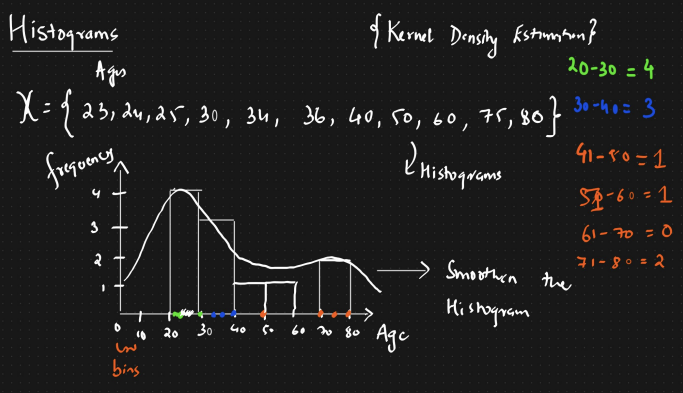 Histograms
{Kernel Density Estimation}
Ages
X = { 23, 24, 25, 30, 34, 36, 40, 50, 60, 75, 80}
20-30 = 4
30-40 = 3
41-50 = 1
51-60 = 1
61-70 = 0
71-80 = 2
Histograms
frequency
4
3
2
1
0 10 20 30 40 50 60 70 80 Age
bins
Smoothen the
Histogram